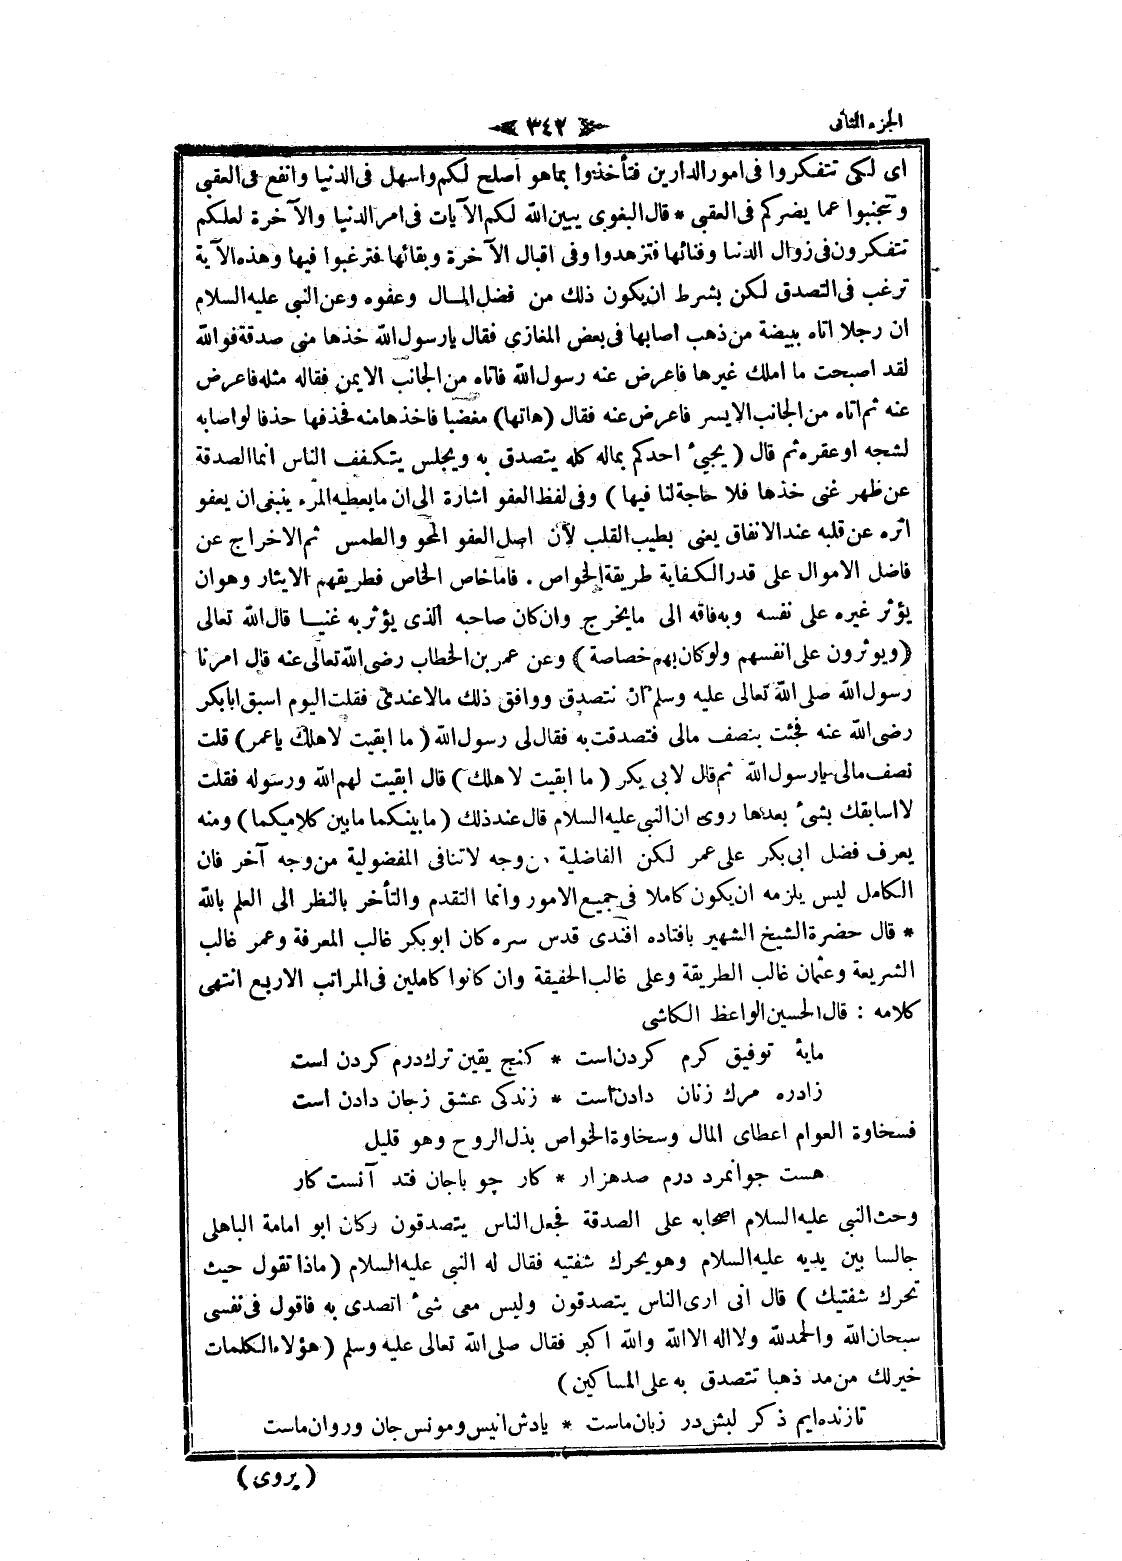 الجزء الثانى
٣٤٢
اى لكى تتفكروا فى امور الدارين فتأخذوا بماهو اصلح لكم واسهل فى الدنيا وانفع فى العقبى
وتجنبوا عما يضركم فى العقبى * قال البغوى يبين الله لكم الآيات فى امر الدنيا والآخرة لعلكم
تتفكرون فى زوال الدنيا وفنائها فتزهدوا وفى اقبال الآخرة وبقائها فترغبوا فيها وهذه الآية
ترغب فى التصدق لكن بشرط ان يكون ذلك من فضل المال وعفوه وعن النبى عليه السلام
ان رجلا اتاه ببيضة من ذهب اصابها فى بعض المغازى فقال يارسول الله خذها منى صدقة فوالله
لقد اصبحت ما املك غيرها فاعرض عنه رسول الله فاتاه من الجانب الايمن فقاله مثله فاعرض
عنه ثم اتاه من الجانب الايسر فاعرض عنه فقال (هاتها) مغضبا فاخذها منه فحذفها حذفا لو اصابه
لشجه او عقره ثم قال (يجيئ احدكم بماله كله يتصدق به ويجلس يتكفف الناس انما الصدقة
عن ظهر غنى خذها فلا حاجة لنا فيها) وفى لفظ العفو اشارة الى ان ما يعطيه المرء ينبغى ان يعفو
اثره عن قلبه عند الانفاق يعنى بطيب القلب لأن اصل العفو المحو والطمس ثم الاخراج عن
فاضل الاموال على قدر الكفاية طريقة الخواص . فاما خاص الخاص فطريقهم الايثار وهو ان
يؤثر غيره على نفسه وبه فاقه الى ما يخرج وان كان صاحبه الذى يؤثر به غنيا قال الله تعالى
(ويوثرون على انفسهم ولو كان بهم خصاصة) وعن عمر بن الخطاب رضى الله تعالى عنه قال امرنا
رسول الله صلى الله تعالى عليه وسلم ان نتصدق ووافق ذلك مالا عندى فقلت اليوم اسبق ابابكر
رضى الله عنه فجئت بنصف مالى فتصدقت به فقال لى رسول الله (ما ابقيت لاهلك ياعمر) قلت
نصف مالى يارسول الله ثم قال لابى بكر (ما ابقيت لاهلك) قال ابقيت لهم الله ورسوله فقلت
لا اسابقك بشئ بعدها روى ان النبى عليه السلام قال عند ذلك (ما بينكما ما بين كلاميكما) ومنه
يعرف فضل ابى بكر على عمر لكن الفاضلية من وجه لاتنافى المفضولية من وجه آخر فان
الكامل ليس يلزمه ان يكون كاملا فى جميع الامور وانما التقدم والتأخر بالنظر الى العلم بالله
* قال حضرة الشيخ الشهير بافتاده افندى قدس سره كان ابوبكر غالب المعرفة وعمر غالب
الشريعة وعثمان غالب الطريقة وعلى غالب الحقيقة وان كانوا كاملين فى المراتب الاربع انتهى
كلامه : قال الحسين الواعظ الكاشى
مايۀ توفيق كرم كردن است * كنج يقين ترك درم كردن است
زادره مرك زنان دادن است * زندكى عشق زجان دادن است
فسخاوة العوام اعطاى المال وسخاوة الخواص بذل الروح وهو قليل
هست جوانمرد درم صدهزار * كار چو باجان فتد آنست كار
وحث النبى عليه السلام اصحابه على الصدقة فجعل الناس يتصدقون وكان ابو امامة الباهلى
جالسا بين يديه عليه السلام وهو يحرك شفتيه فقال له النبى عليه السلام (ماذا تقول حيث
تحرك شفتيك) قال انى ارى الناس يتصدقون وليس معى شئ اتصدى به فاقول فى نفسى
سبحان الله والحمدلله ولا اله الا الله والله اكبر فقال صلى الله تعالى عليه وسلم (هؤلاء الكلمات
خيرلك من مد ذهبا تتصدق به على المساكين)
تازنده ايم ذكر لبش در زبان ماست * يادش انيس ومونس جان وروان ماست
(يروى)